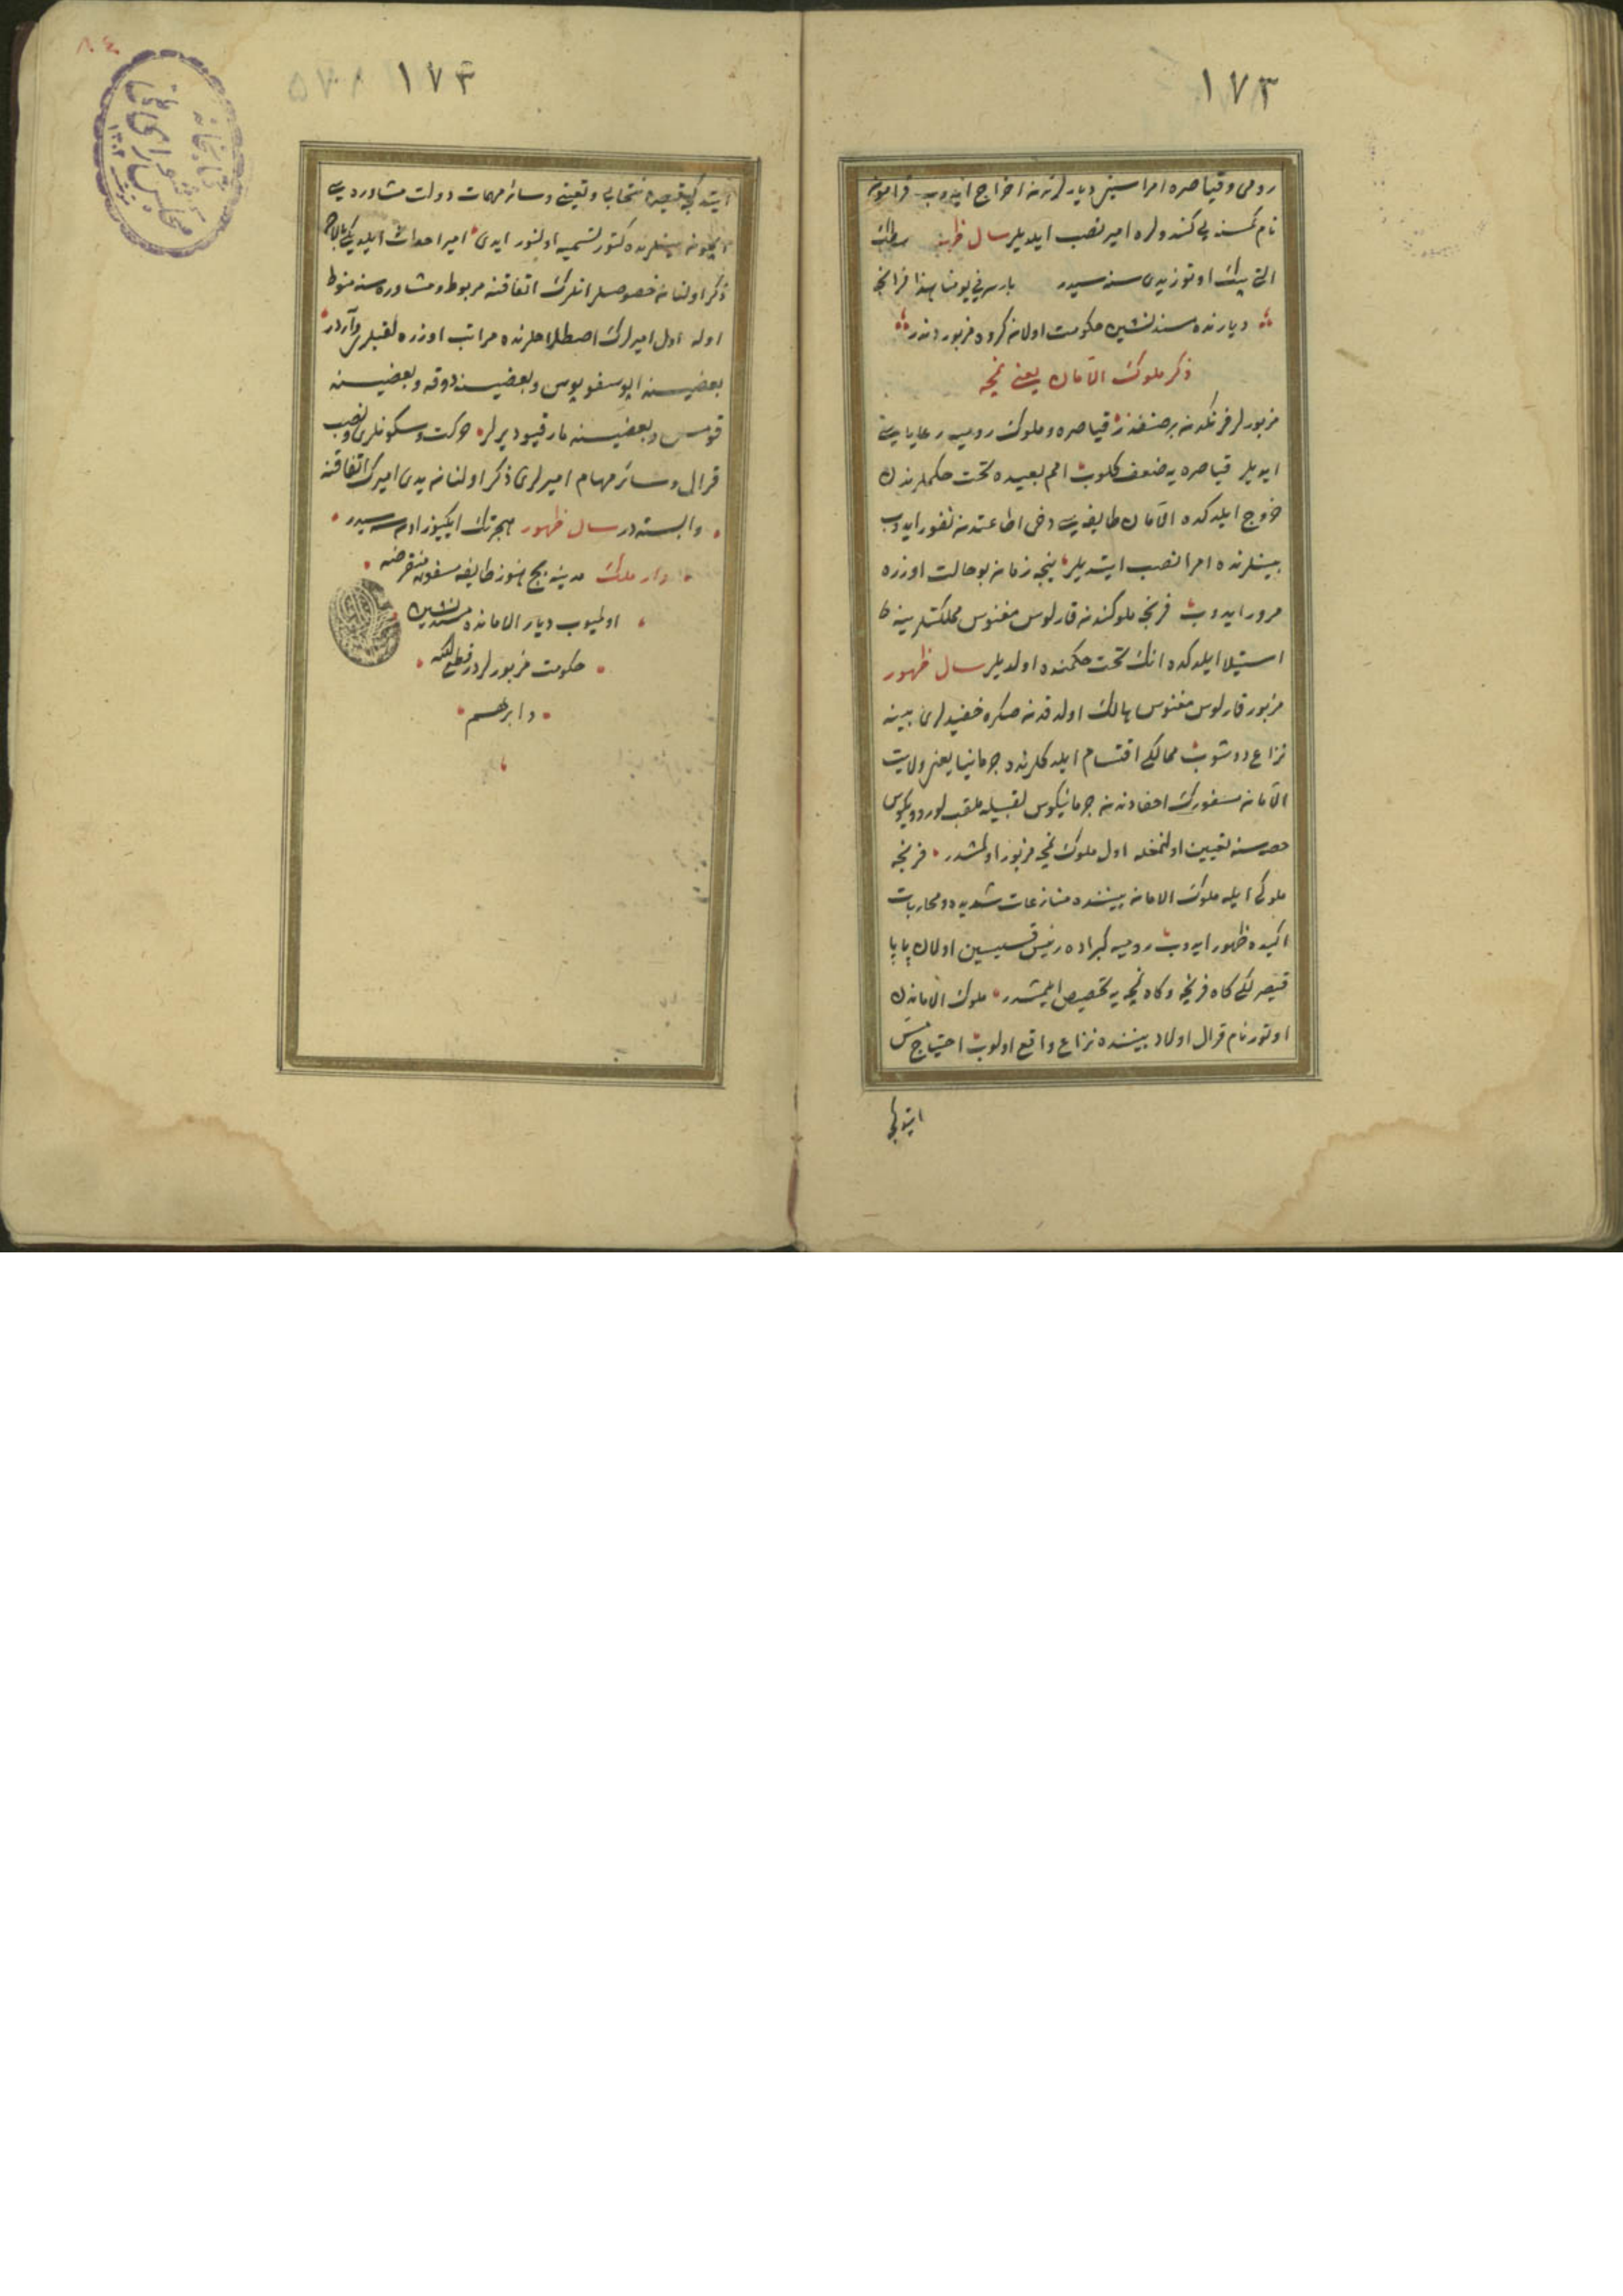 ١٧٣
رومی و قیاصره امراسین دیارلرندن اخراج ایدوب فراموند
نام کمسنه یی کندولره امیر نصب ایلدیلر سال ظهور
التی بیك اوتوز یدی سنه سیدر بو یومنا هذا فرانجه
دیارنده مسندنشین حکومت اولان کروه مزبور دندر
ذکر ملوك الامان یعنی نمچه
مزبورلر فرنکدن بر صنفدر قیاصره و ملوك رومیه رعایاسی
ایدیلر قیاصره یه ضعف کلوب امم بعیده تحت حکملرندن
خروج ایلدکده الامان طایفه سی دخی اطاعتدن نفور ایدوب
بینلرنده امرا نصب ایتدیلر نیجه زمان بو حالت اوزره
مرور ایدوب فرنجه ملوکندن قارلوس مغنوس مملکتلرینه
استیلا ایلدکده انك تحت حکمنده اولدیلر سال ظهور
مزبور قارلوس مغنوس هالك اولدقدن صکره حفیدلری بینه
نزاع دوشوب ممالکی اقتسام ایلدکلرنده جرمانیا یعنی ولایت
الامان مسفورك احفادندن جرمانیکوس لقبیله ملقب لوردویکوس
حصه سنه تعیین اولنمغله اول ملوك نمچه مزبور اولمشدر فرنجه
ملوکی ایله ملوك الامان بیننده منازعات شدیده و محاربات
اکیده ظهور ایدوب رومیه کبراده رئیس قسیسین اولان پاپا
قیصرلکی کاه فرنجه و کاه نمچه یه تخصیص ایلمشدر ملوك الاماندن
اوتور نام قرال اولاد بیننده نزاع واقع اولوب احتیاج
١٧٣
انتخابی و تعیینی و سائر مهمات دولت مشاوره سی
ایچون بینلرنده کتور تسمیه اولنور یدی امیر احداث ایلدی
ذکر اولنان خصوصلر انلرك اتفاقنه مربوط و مشاوره سنه منوط
اوله اول امیرلرك اصطلاحلرنده مراتب اوزره لقبلری واردر
بعضیسنه اپوسقوپوس و بعضیسنه دوقه و بعضیسنه
قومس و بعضیسنه مارقیو دیرلر حرکت و سکونلری و نصب
قرال و سائر مهام امیرلری ذکر اولنان یدی امیرك اتفاقنه
وابسته در سال ظهور هجرتك ایکیوز اون سنه سیدر
دار ملك مدینه بج هنوز طایفه مسفوره منقرضه
اولمیوب دیار الامانده مسندنشین
حکومت مزبورلردر قطع الله
دابرهم